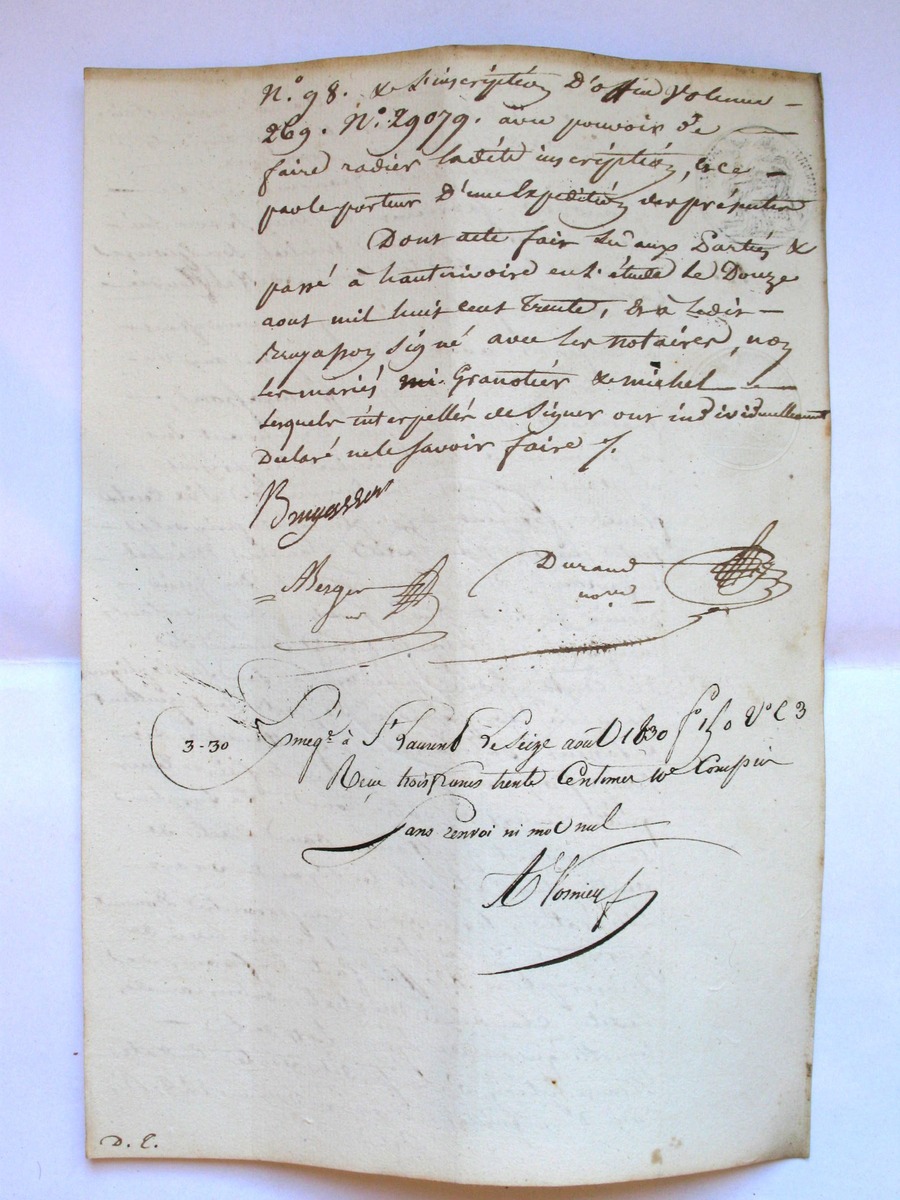 N.° 98. & l'inscription D'office Volume –
269. N.° 29079. avec pouvoir de
faire radier ladite inscription, & ce –
par le porteur D'une Expédition des présentes
Dont acte fait lu aux Parties &
passé à hauterivoire en l'étude le Douze
aout mil huit cent trente, & à ledit –
Bruyasson signé avec les notaires, non
les mariés Granotier & michel –
lesquels interpellés de signer ont individuellement
Declaré ne le savoir faire /.
Bruyasson
ABerger
nre
Durand
nore –
3-30
Enregé à St Laurent Le Seize aout 1830 fo 150 Vo C 3
Reçu trois francs trente Centimes 10e Compris
Sans renvoi ni mot nul
D. E.